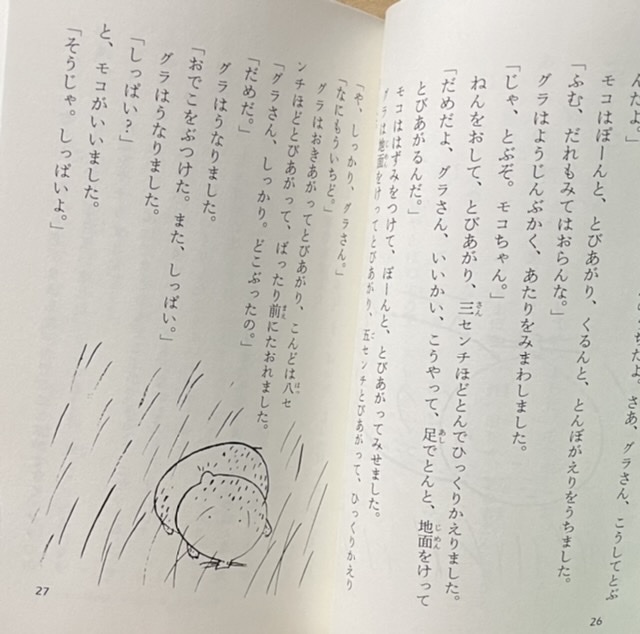 んだよ」
モコはぽーんと、とびあがり、くるんと、とんぼがえりをうちました。
「ふむ、だれもみてはおらんな。」
グラはようじんぶかく、あたりをみまわしました。
「じゃ、とぶぞ。モコちゃん。」
ねんをおして、とびあがり、三センチほどとんでひっくりかえりました。
「だめだよ、グラさん、いいかい、こうやって、足でとんと、地面をけって
とびあがるんだ。」
モコははずみをつけて、ぽーんと、とびあがってみせました。
グラは地面をけってとびあがり、五センチとびあがって、ひっくりかえり
26
「や、しっかり、グラさん。」
「なにもういちど。」
グラはおきあがってとびあがり、こんどは八セ
ンチほどとびあがって、ばったり前にたおれました。
「グラさん、しっかり。どこぶったの。」
「だめだ。」
グラはうなりました。
「おでこをぶつけた。また、しっぱい。」
グラはうなりました。
「しっぱい?」
と、モコがいいました。
「そうじゃ。しっぱいよ。」
27